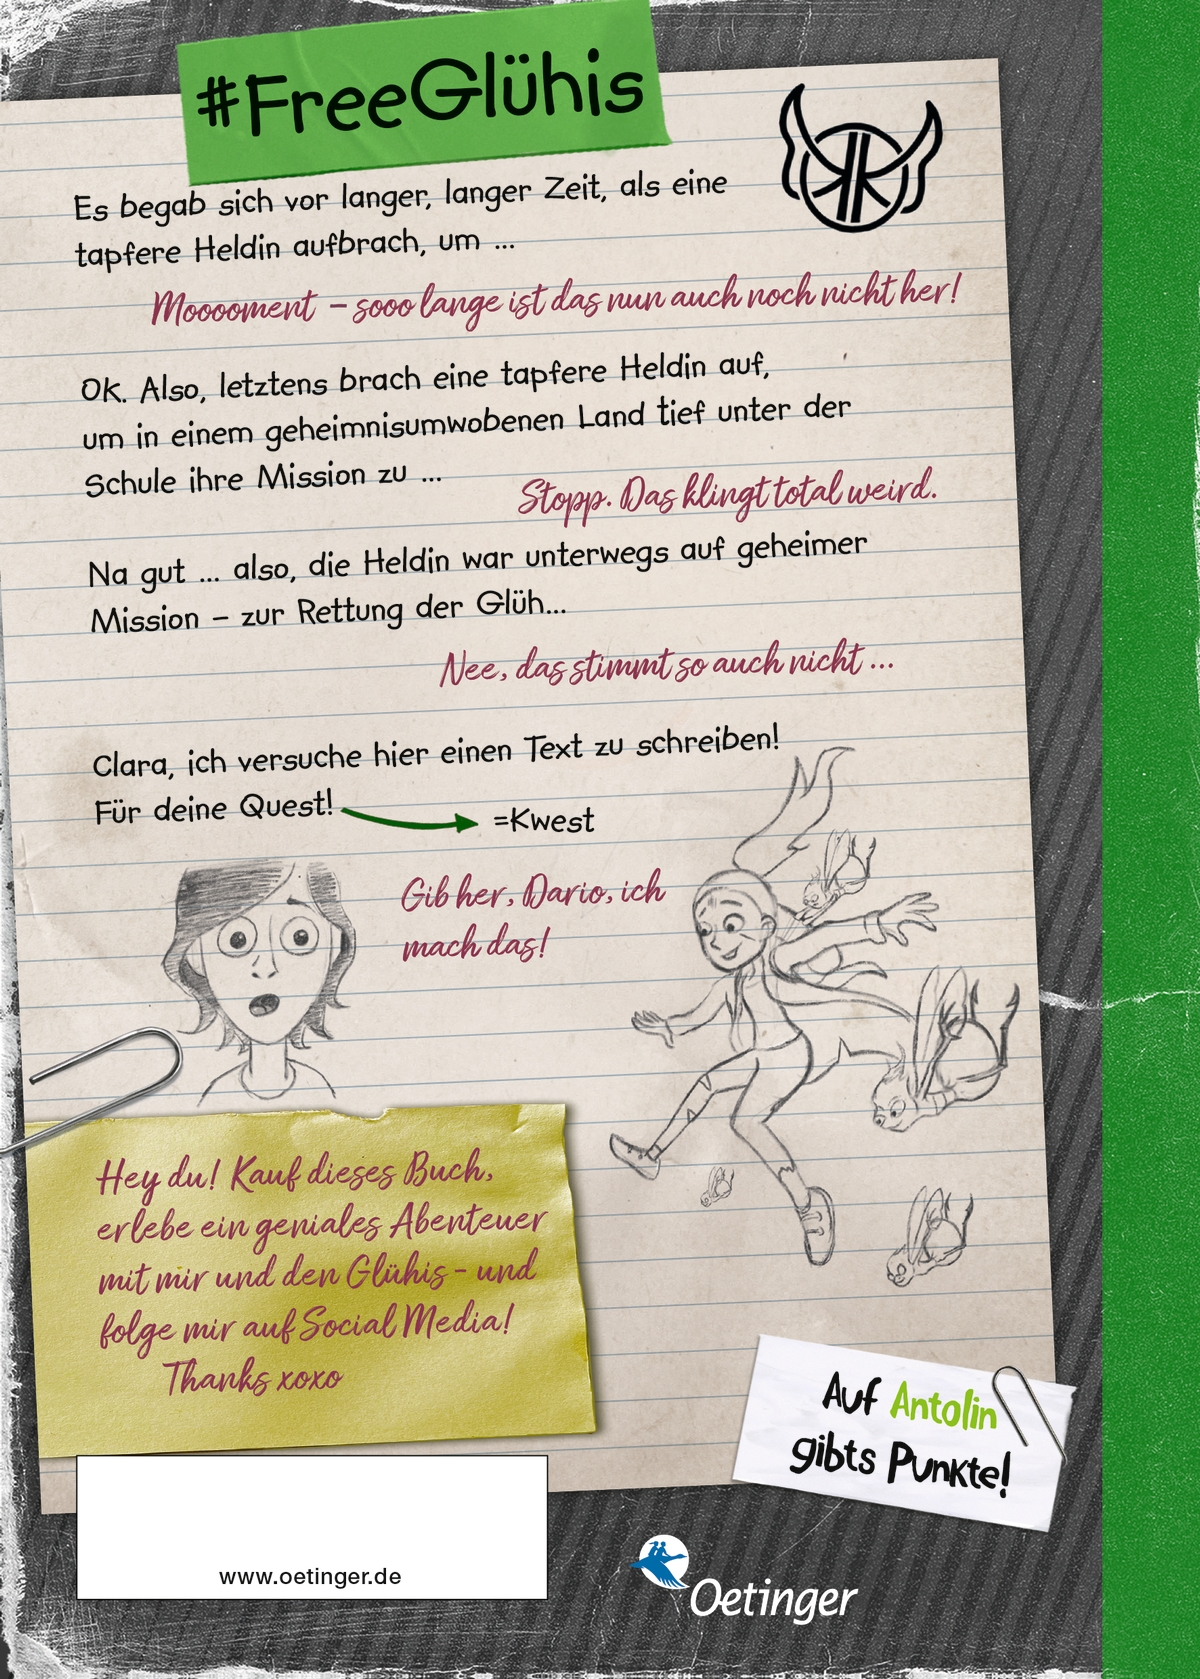 #FreeGlühis
Es begab sich vor langer, langer Zeit, als eine
tapfere Heldin aufbrach, um ...
Mooooment – sooo lange ist das nun auch noch nicht her!
OK. Also, letztens brach eine tapfere Heldin auf,
um in einem geheimnisumwobenen Land tief unter der
Schule ihre Mission zu ...
Stopp. Das klingt total weird.
Na gut ... also, die Heldin war unterwegs auf geheimer
Mission – zur Rettung der Glüh...
Nee, das stimmt so auch nicht ...
Clara, ich versuche hier einen Text zu schreiben!
Für deine Quest!
=Kwest
Gib her, Dario, ich
mach das!
Hey du! Kauf dieses Buch,
erlebe ein geniales Abenteuer
mit mir und den Glühis - und
folge mir auf Social Media!
Thanks xoxo
Auf Antolin
gibts Punkte!
www.oetinger.de
Oetinger